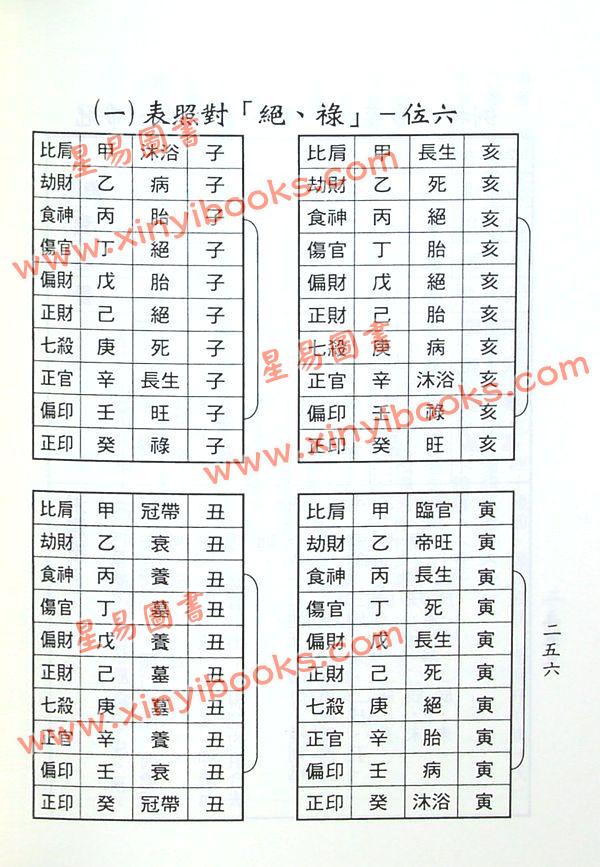 六位－「祿、絕」對照表(一)
比肩 甲 沐浴 子
劫財 乙 病 子
食神 丙 胎 子
傷官 丁 絕 子
偏財 戊 胎 子
正財 己 絕 子
七殺 庚 死 子
正官 辛 長生 子
偏印 壬 旺 子
正印 癸 祿 子
比肩 甲 長生 亥
劫財 乙 死 亥
食神 丙 絕 亥
傷官 丁 胎 亥
偏財 戊 絕 亥
正財 己 胎 亥
七殺 庚 病 亥
正官 辛 沐浴 亥
偏印 壬 祿 亥
正印 癸 旺 亥
比肩 甲 冠帶 丑
劫財 乙 衰 丑
食神 丙 養 丑
傷官 丁 墓 丑
偏財 戊 養 丑
正財 己 墓 丑
七殺 庚 墓 丑
正官 辛 養 丑
偏印 壬 衰 丑
正印 癸 冠帶 丑
比肩 甲 臨官 寅
劫財 乙 帝旺 寅
食神 丙 長生 寅
傷官 丁 死 寅
偏財 戊 長生 寅
正財 己 死 寅
七殺 庚 絕 寅
正官 辛 胎 寅
偏印 壬 病 寅
正印 癸 沐浴 寅
二五六
星易圖書
www.xinyibooks.com
星易圖書
www.xinyibooks.com
星易圖書
www.xinyibooks.com